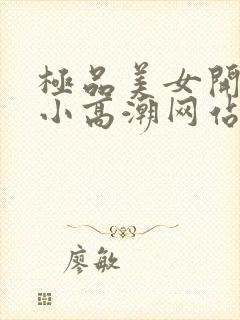 極品美女開
小高潮网佔
廖敏